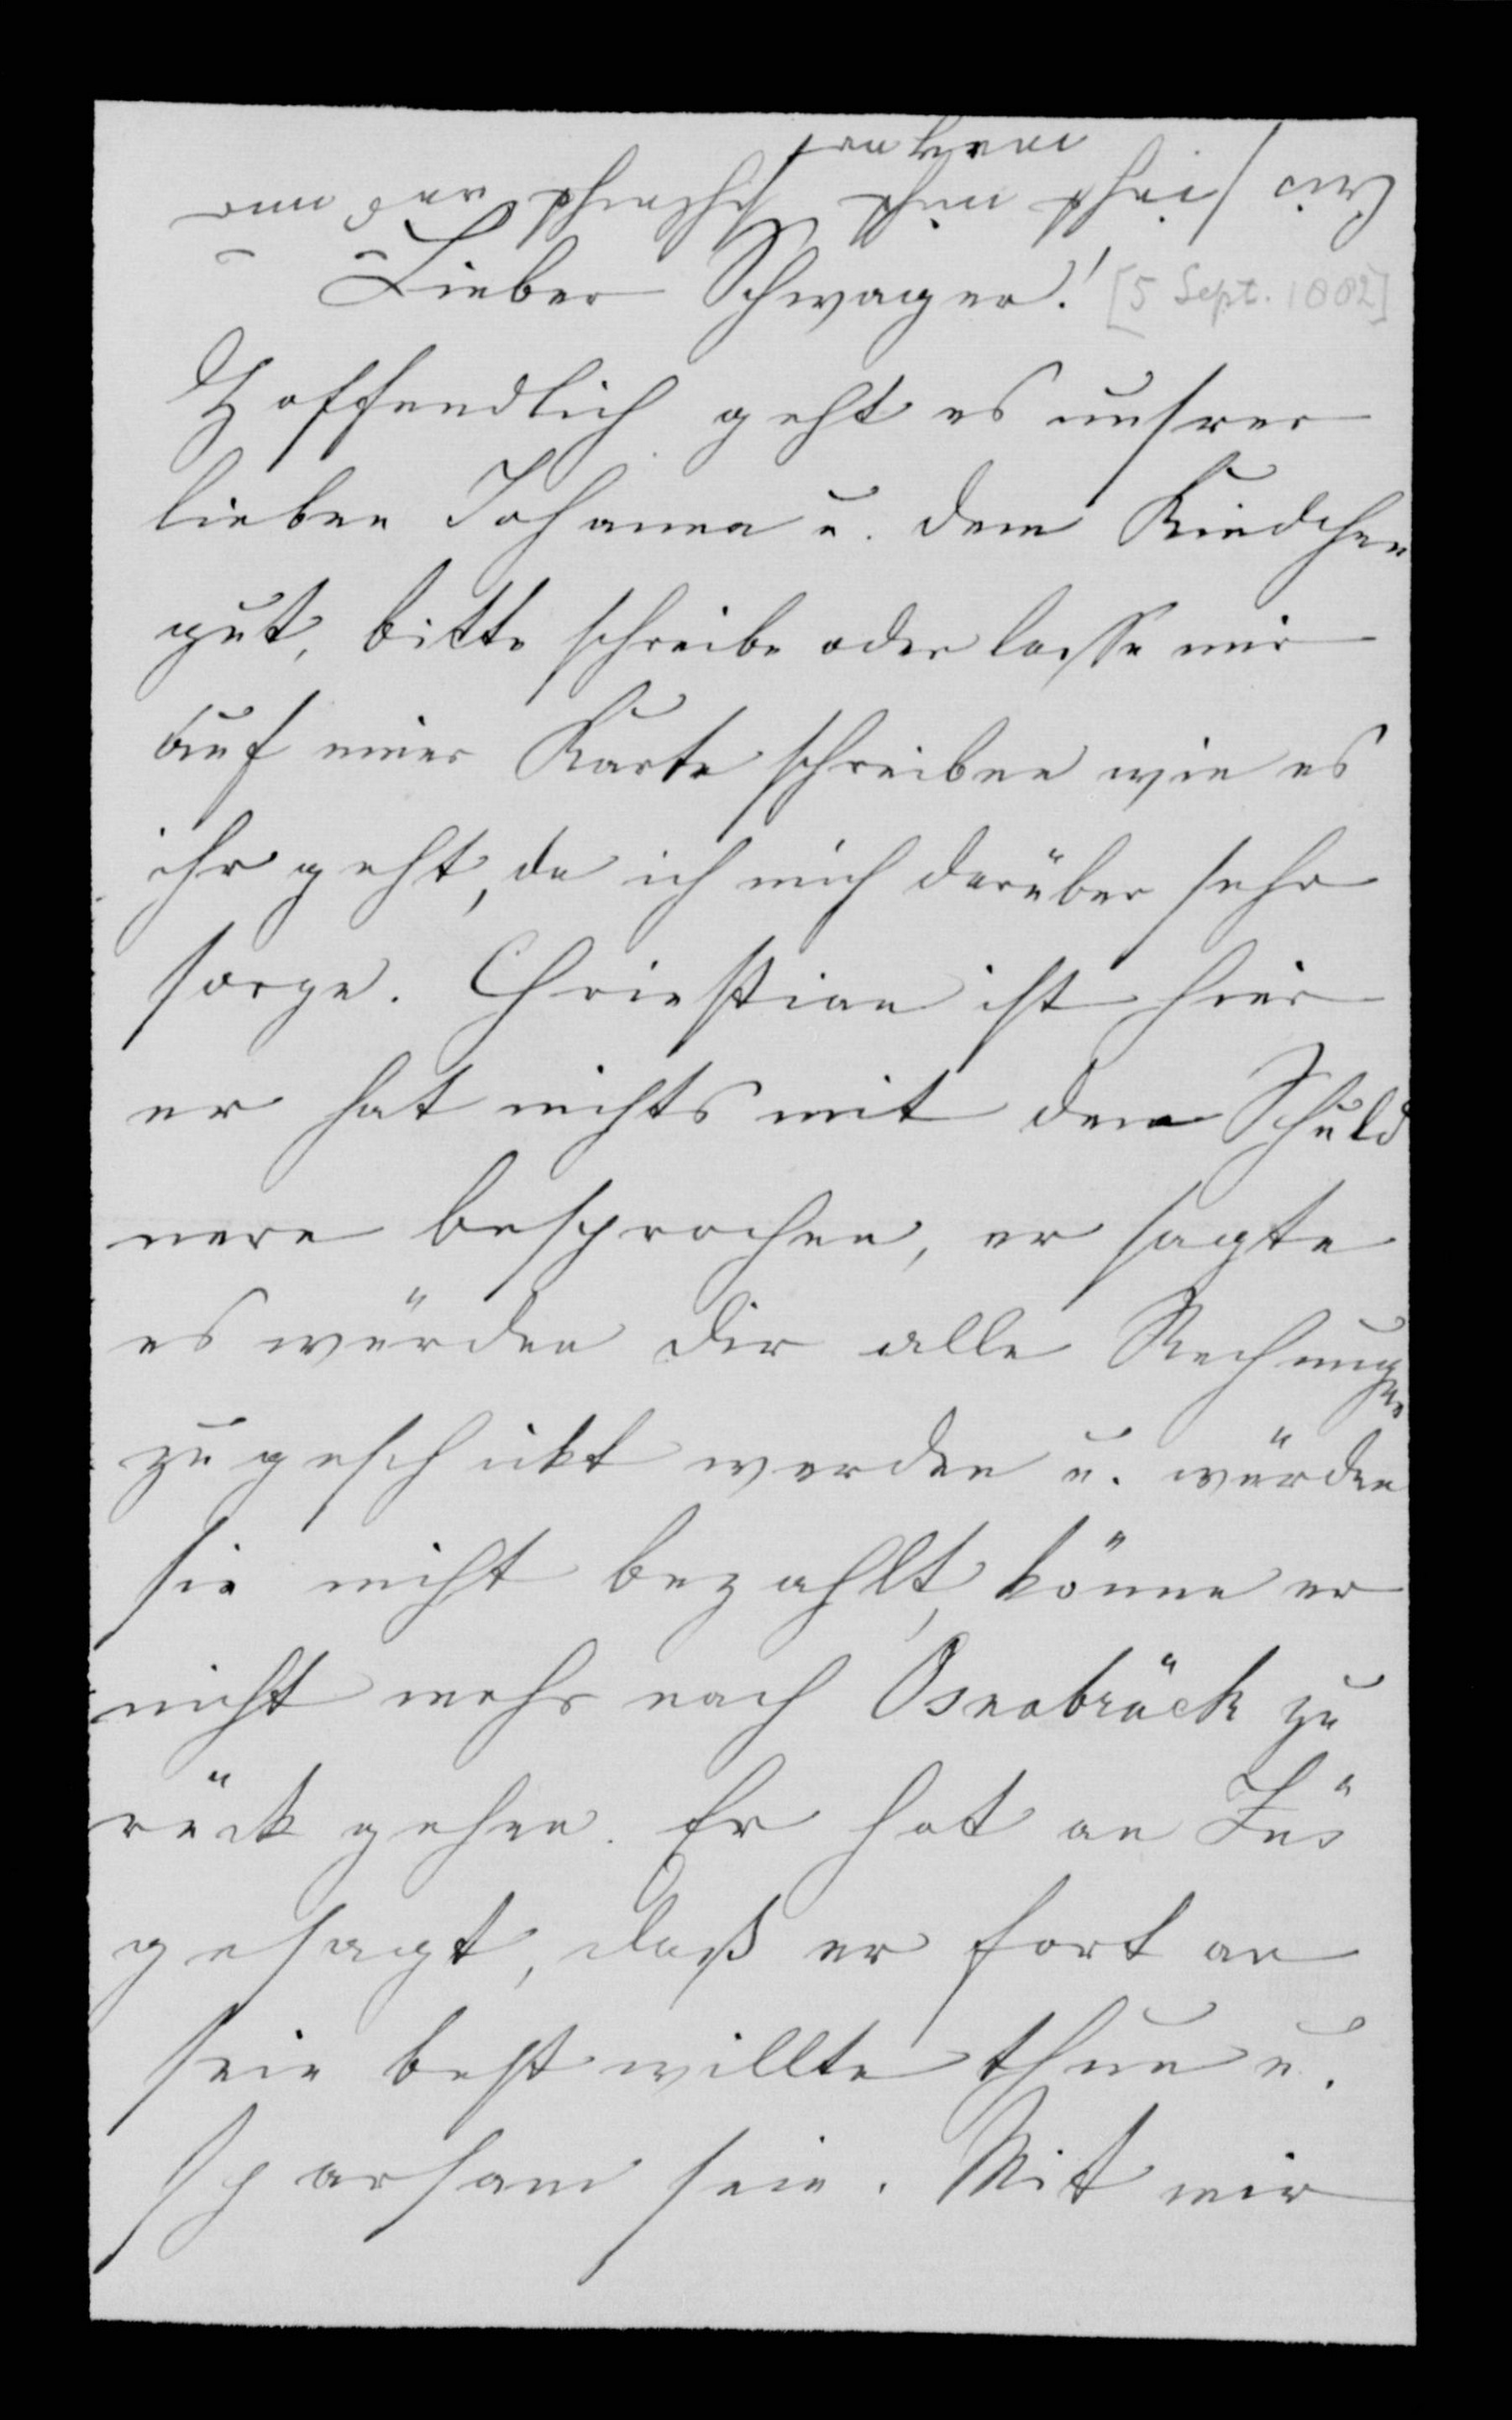 Lieber Schwager! [5 Sept. 1882]
Hoffendlich geht es unsrer
lieben Johanna u. dem Kindchen
gut, bitte schreibe oder lasse mir
auf einer Karte schreiben wie es
ihr geht, da ich mich darüber sehr
sorge. Chriestian ist hier
er hat nichts mit den Schuld
nern besprochen, er sagte
es würden dir alle Rechnungen
zugeschickt werden u. würden
sie nicht bezahlt, könne er
nicht mehr nach Osnabrück zu
rück gehen. Er hat an
gesagt, daß er fort an
sein best willte thun u.
sparsam sein. Mit mir